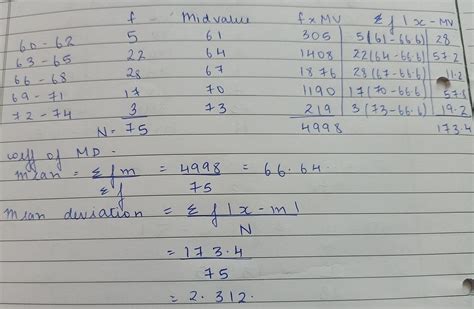 f Midvalue f x MV Σ f | x - MV
60 - 62 5 61 305 5(61-66.6) 28
63 - 65 22 64 1408 22(64-66.6) 57.2
66 - 68 28 67 1876 28(67-66.6) 11.2
69 - 71 17 70 1190 17(70-66.6) 57.8
72 - 74 3 73 219 3(73-66.6) 19.2
N = 75 4998 173.4
coeff of MD.
mean = Σfm / Σf = 4998 / 75 = 66.64.
Mean deviation = Σf|x - m| / N
= 173.4 / 75
= 2.312.